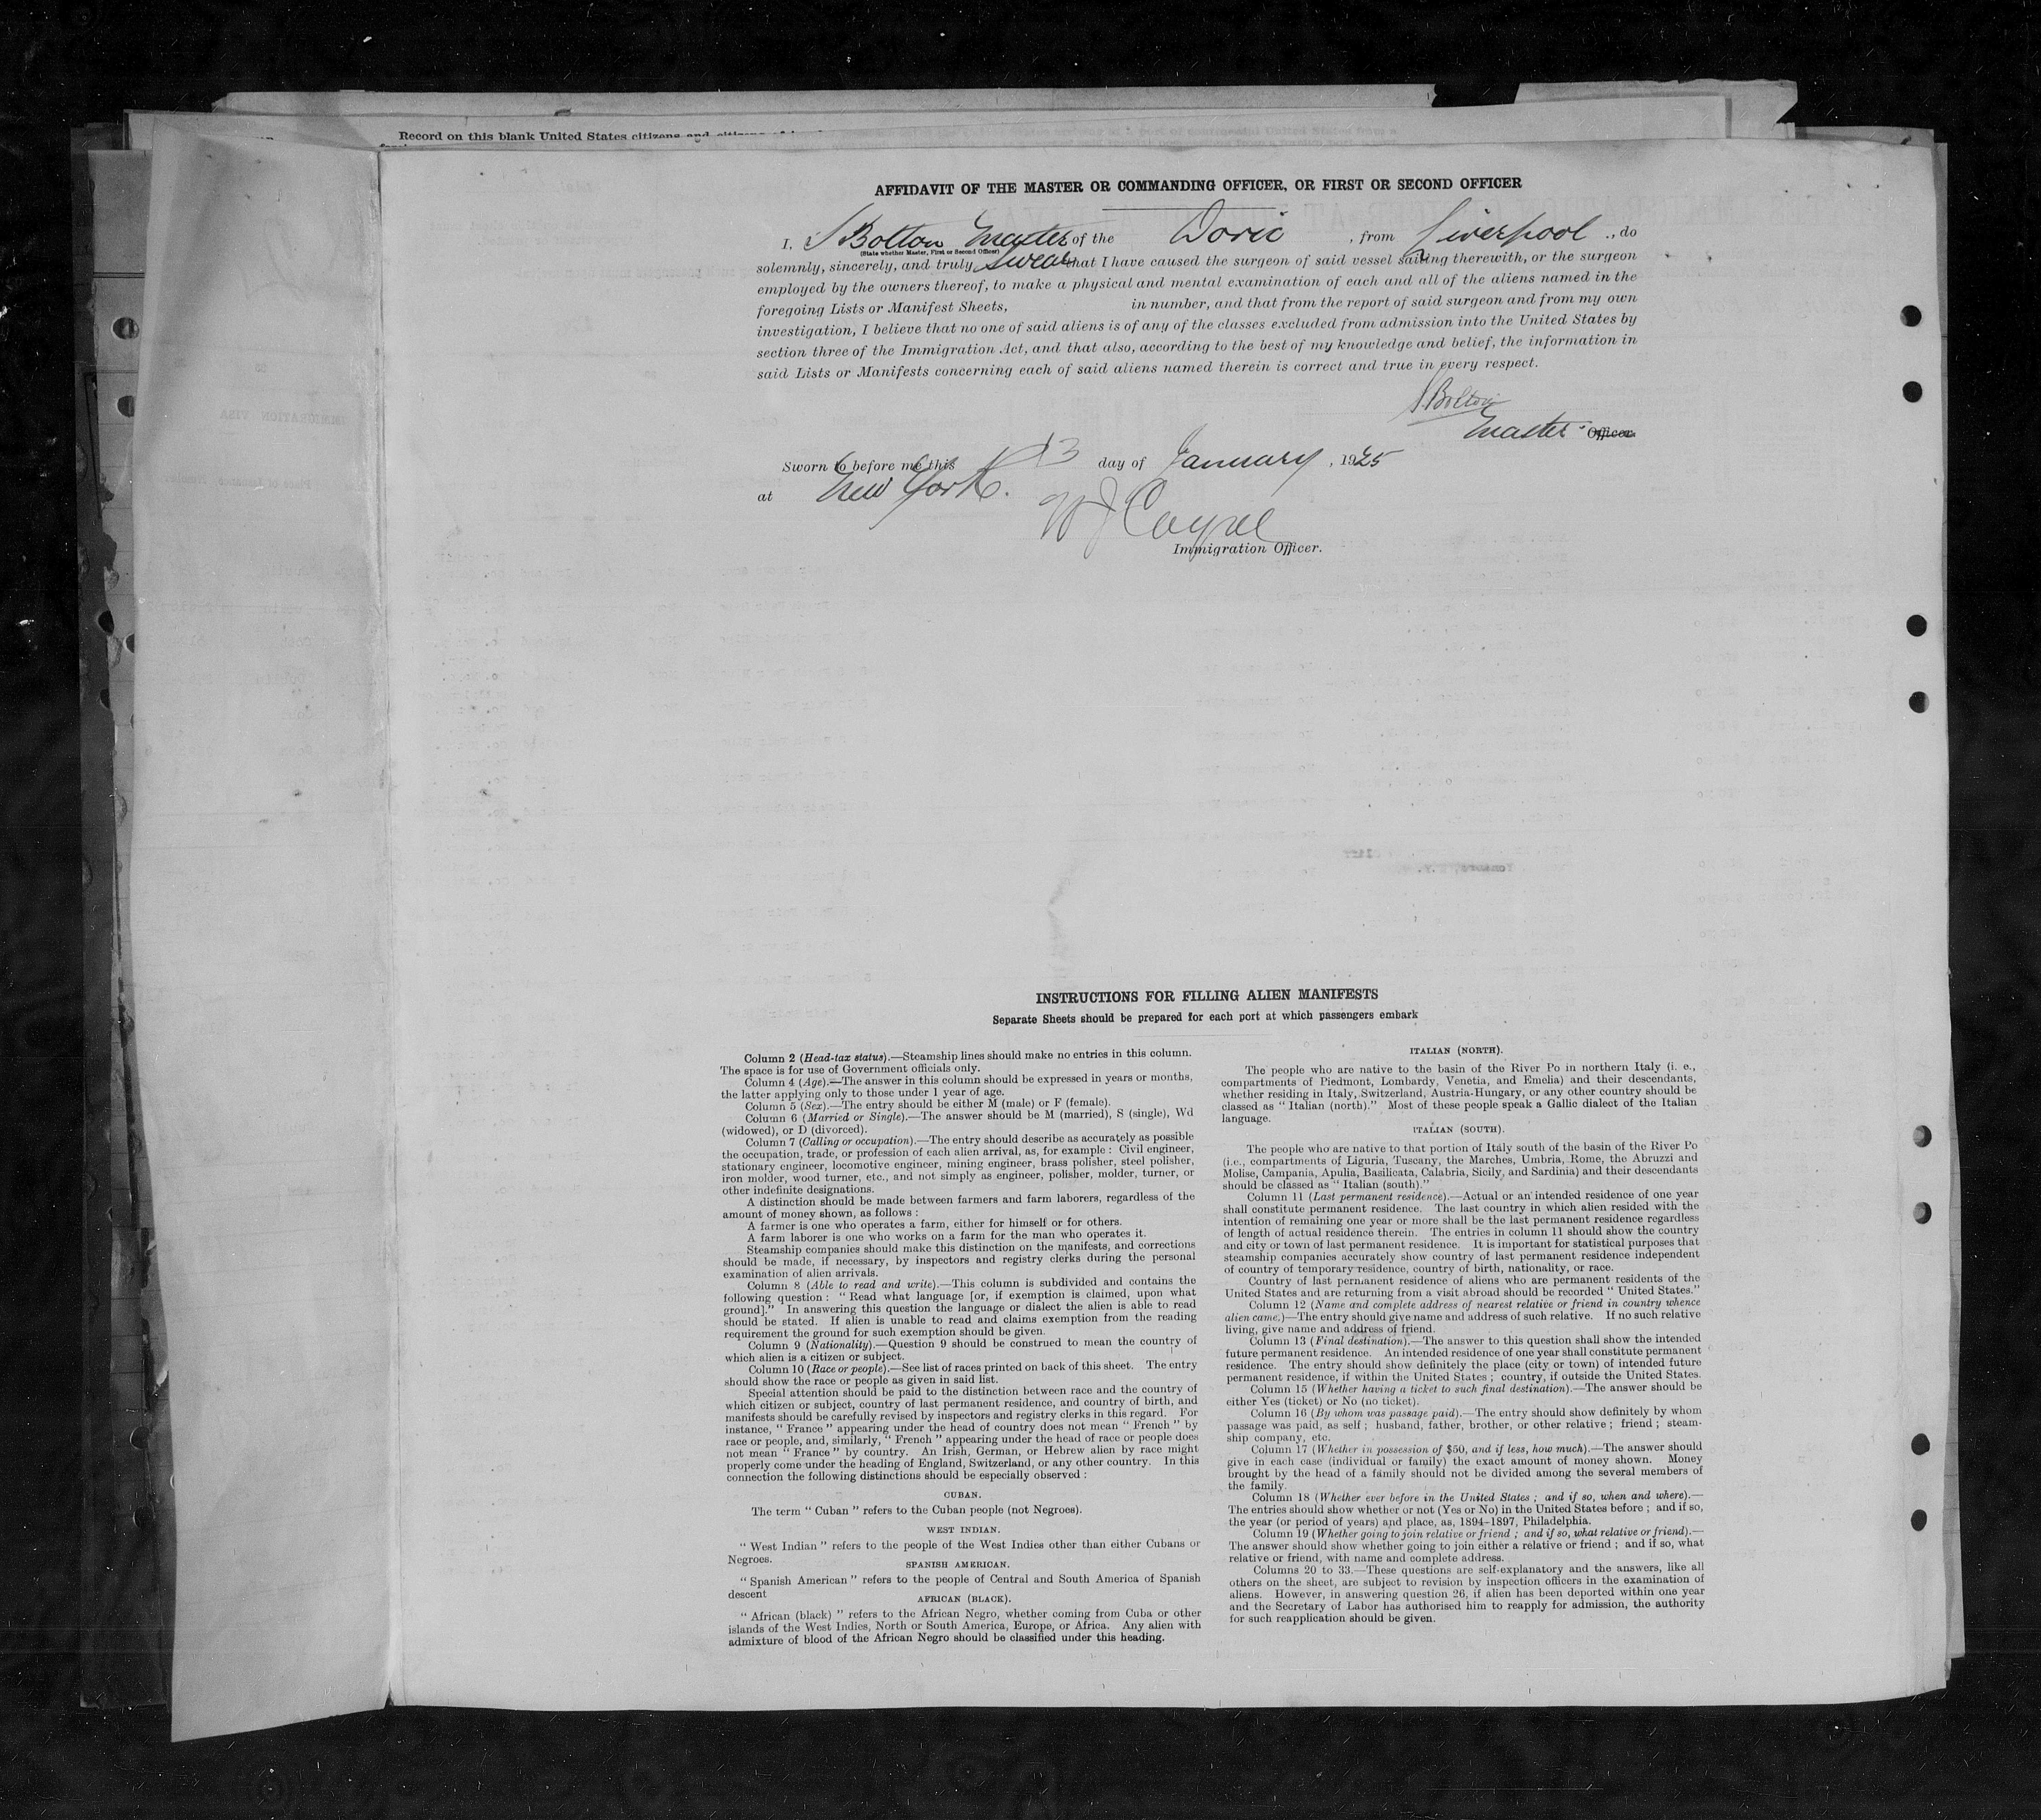 Record on this blank United States citizens and citizens of
AFFIDAVIT OF THE MASTER OR COMMANDING OFFICER, OR FIRST OR SECOND OFFICER
I, S Bolton Master of the Doric, from Liverpool, do
(State whether Master, First or Second Officer)
solemnly, sincerely, and truly swear that I have caused the surgeon of said vessel sailing therewith, or the surgeon
employed by the owners thereof, to make a physical and mental examination of each and all of the aliens named in the
foregoing Lists or Manifest Sheets, in number, and that from the report of said surgeon and from my own
investigation, I believe that no one of said aliens is of any of the classes excluded from admission into the United States by
section three of the Immigration Act, and that also, according to the best of my knowledge and belief, the information in
said Lists or Manifests concerning each of said aliens named therein is correct and true in every respect.
S Bolton
Master Officer.
Sworn to before me this 13 day of January, 1925
at New York.
Immigration Officer.
INSTRUCTIONS FOR FILLING ALIEN MANIFESTS
Separate Sheets should be prepared for each port at which passengers embark
Column 2 (Head-tax status).—Steamship lines should make no entries in this column.
The space is for use of Government officials only.
Column 4 (Age).—The answer in this column should be expressed in years or months,
the latter applying only to those under 1 year of age.
Column 5 (Sex).—The entry should be either M (male) or F (female).
Column 6 (Married or Single).—The answer should be M (married), S (single), Wd
(widowed), or D (divorced).
Column 7 (Calling or occupation).—The entry should describe as accurately as possible
the occupation, trade, or profession of each alien arrival, as, for example : Civil engineer,
stationary engineer, locomotive engineer, mining engineer, brass polisher, steel polisher,
iron molder, wood turner, etc., and not simply as engineer, polisher, molder, turner, or
other indefinite designations.
A distinction should be made between farmers and farm laborers, regardless of the
amount of money shown, as follows :
A farmer is one who operates a farm, either for himself or for others.
A farm laborer is one who works on a farm for the man who operates it.
Steamship companies should make this distinction on the manifests, and corrections
should be made, if necessary, by inspectors and registry clerks during the personal
examination of alien arrivals.
Column 8 (Able to read and write).—This column is subdivided and contains the
following question : “ Read what language [or, if exemption is claimed, upon what
ground].” In answering this question the language or dialect the alien is able to read
should be stated. If alien is unable to read and claims exemption from the reading
requirement the ground for such exemption should be given.
Column 9 (Nationality).—Question 9 should be construed to mean the country of
which alien is a citizen or subject.
Column 10 (Race or people).—See list of races printed on back of this sheet. The entry
should show the race or people as given in said list.
Special attention should be paid to the distinction between race and the country of
which citizen or subject, country of last permanent residence, and country of birth, and
manifests should be carefully revised by inspectors and registry clerks in this regard. For
instance, “ France ” appearing under the head of country does not mean “ French ” by
race or people, and, similarly, “ French ” appearing under the head of race or people does
not mean “ France ” by country. An Irish, German, or Hebrew alien by race might
properly come under the heading of England, Switzerland, or any other country. In this
connection the following distinctions should be especially observed :
CUBAN.
The term “ Cuban ” refers to the Cuban people (not Negroes).
WEST INDIAN.
“ West Indian ” refers to the people of the West Indies other than either Cubans or
Negroes.
SPANISH AMERICAN.
“ Spanish American ” refers to the people of Central and South America of Spanish
descent
AFRICAN (BLACK).
“ African (black) ” refers to the African Negro, whether coming from Cuba or other
islands of the West Indies, North or South America, Europe, or Africa. Any alien with
admixture of blood of the African Negro should be classified under this heading.
ITALIAN (NORTH).
The people who are native to the basin of the River Po in northern Italy (i. e.,
compartments of Piedmont, Lombardy, Venetia, and Emelia) and their descendants,
whether residing in Italy, Switzerland, Austria-Hungary, or any other country should be
classed as “ Italian (north).” Most of these people speak a Gallic dialect of the Italian
language.
ITALIAN (SOUTH).
The people who are native to that portion of Italy south of the basin of the River Po
(i.e., compartments of Liguria, Tuscany, the Marches, Umbria, Rome, the Abruzzi and
Molise, Campania, Apulia, Basilicata, Calabria, Sicily, and Sardinia) and their descendants
should be classed as “ Italian (south).”
Column 11 (Last permanent residence).—Actual or an intended residence of one year
shall constitute permanent residence. The last country in which alien resided with the
intention of remaining one year or more shall be the last permanent residence regardless
of length of actual residence therein. The entries in column 11 should show the country
and city or town of last permanent residence. It is important for statistical purposes that
steamship companies accurately show country of last permanent residence independent
of country of temporary residence, country of birth, nationality, or race.
Country of last permanent residence of aliens who are permanent residents of the
United States and are returning from a visit abroad should be recorded “ United States.”
Column 12 (Name and complete address of nearest relative or friend in country whence
alien came.)—The entry should give name and address of such relative. If no such relative
living, give name and address of friend.
Column 13 (Final destination).—The answer to this question shall show the intended
future permanent residence. An intended residence of one year shall constitute permanent
residence. The entry should show definitely the place (city or town) of intended future
permanent residence, if within the United States ; country, if outside the United States.
Column 15 (Whether having a ticket to such final destination).—The answer should be
either Yes (ticket) or No (no ticket).
Column 16 (By whom was passage paid).—The entry should show definitely by whom
passage was paid, as self ; husband, father, brother, or other relative ; friend ; steam-
ship company, etc.
Column 17 (Whether in possession of $50, and if less, how much).—The answer should
give in each case (individual or family) the exact amount of money shown. Money
brought by the head of a family should not be divided among the several members of
the family.
Column 18 (Whether ever before in the United States ; and if so, when and where).—
The entries should show whether or not (Yes or No) in the United States before ; and if so,
the year (or period of years) and place, as, 1894–1897, Philadelphia.
Column 19 (Whether going to join relative or friend ; and if so, what relative or friend).—
The answer should show whether going to join either a relative or friend ; and if so, what
relative or friend, with name and complete address.
Columns 20 to 33.—These questions are self-explanatory and the answers, like all
others on the sheet, are subject to revision by inspection officers in the examination of
aliens. However, in answering question 26, if alien has been deported within one year
and the Secretary of Labor has authorised him to reapply for admission, the authority
for such reapplication should be given.